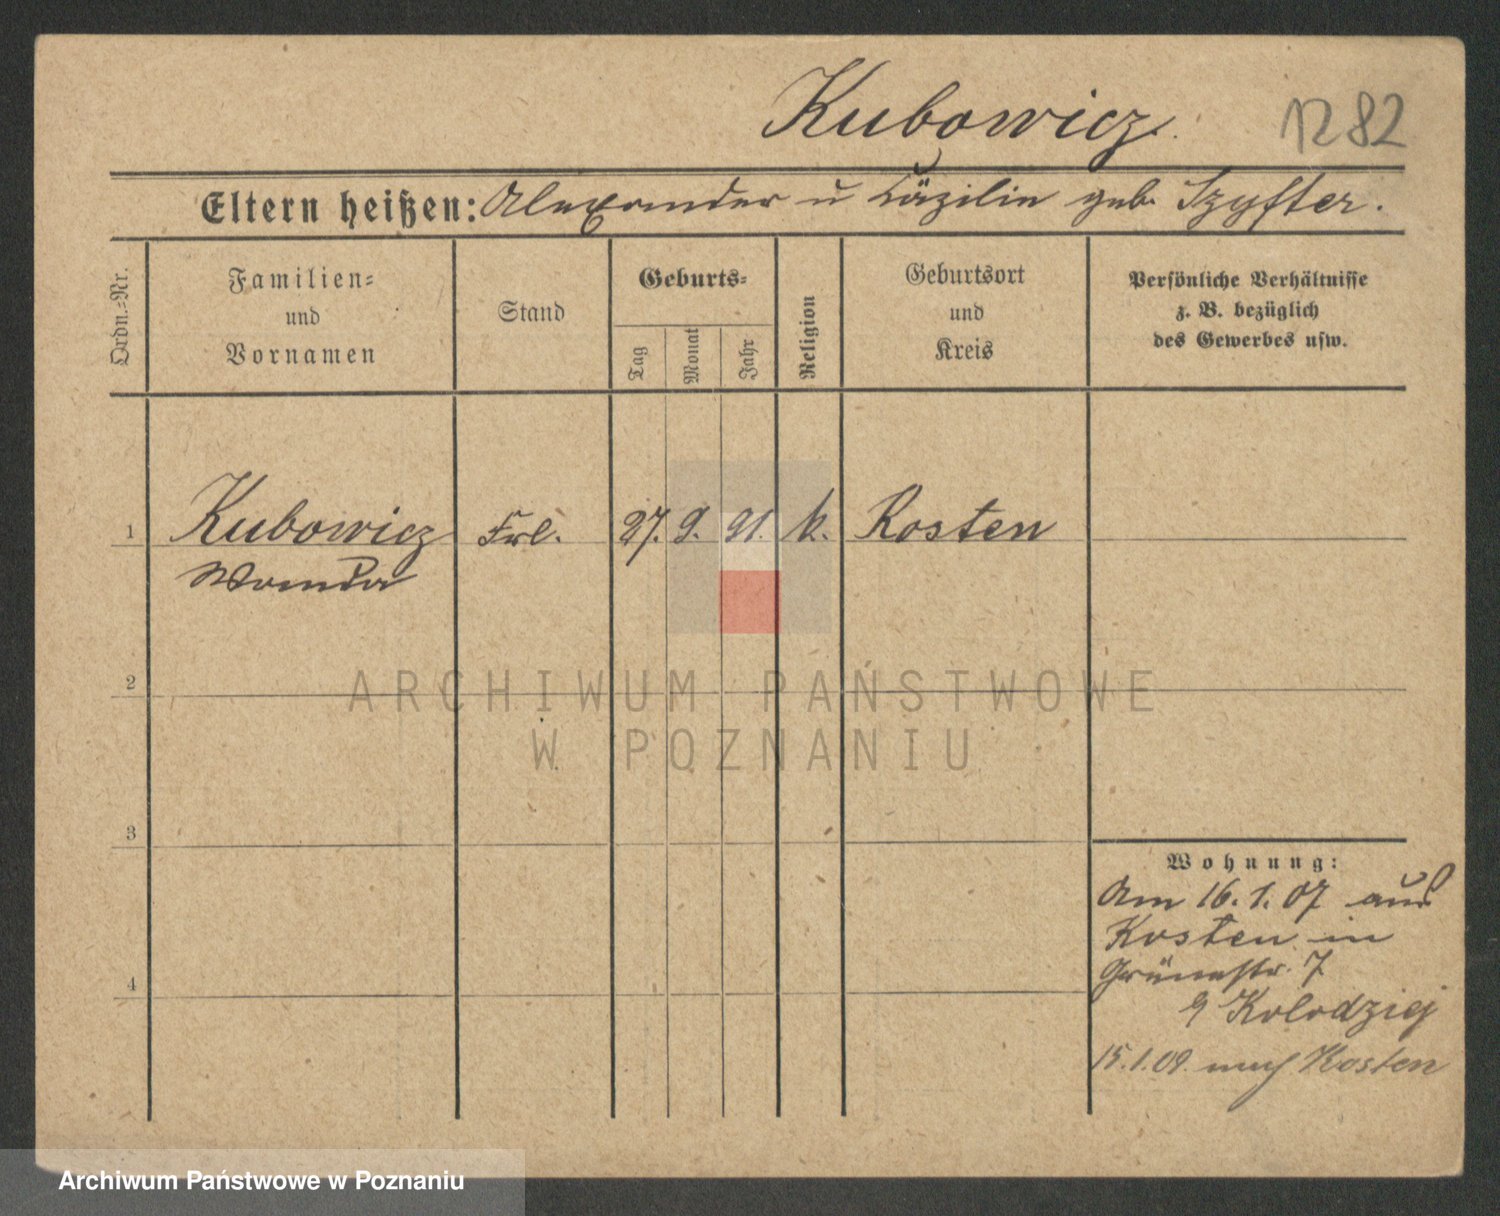 Kubowicz. 1282
Eltern heißen: Alexander u Cäzilie geb. Szyfter.
Ordn.-Nr.
Familien-
und
Vornamen
Stand
Geburts-
Tag
Monat
Jahr
Religion
Geburtsort
und
Kreis
Persönliche Verhältnisse
z. B. bezüglich
des Gewerbes usw.
1 Kubowicz Frl. 27. 9. 91. k. Kosten
Wanda
2
ARCHIWUM PAŃSTWOWE
W POZNANIU
3
Wohnung:
Am 16.1.07 aus
Kosten in
Grünestr. 7
4
Kolodziej
15.1.09. nach Kosten
Archiwum Państwowe w Poznaniu